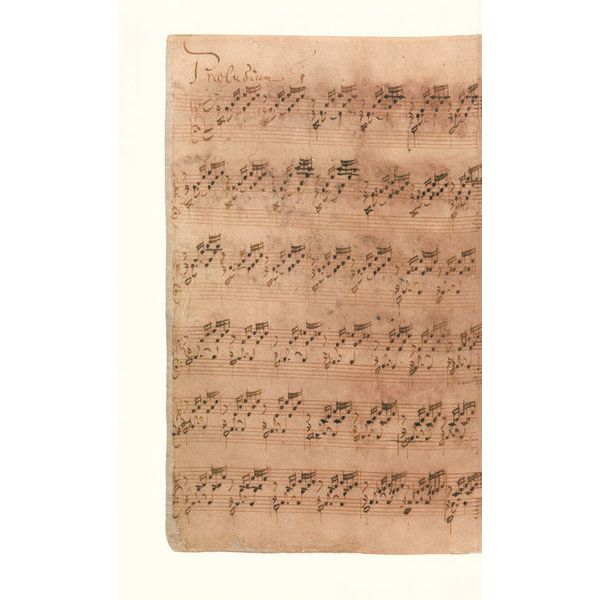 Præludium